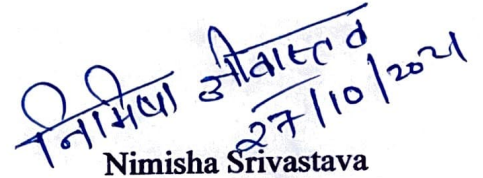 निमिषा श्रीवास्तव
27/10/2021
Nimisha Srivastava